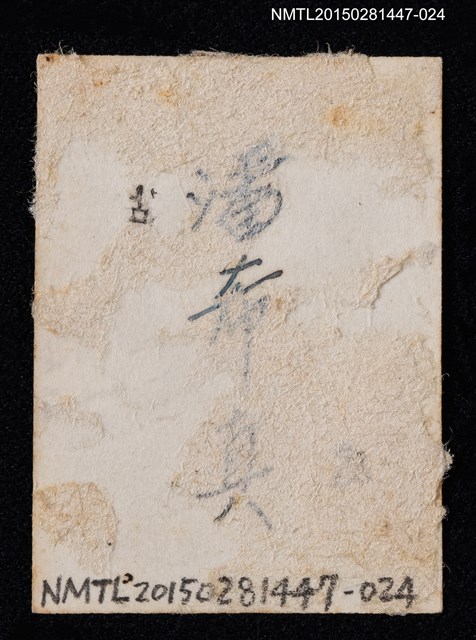 NMTL20150281447-024
潘希真
NMTL20150281447-024